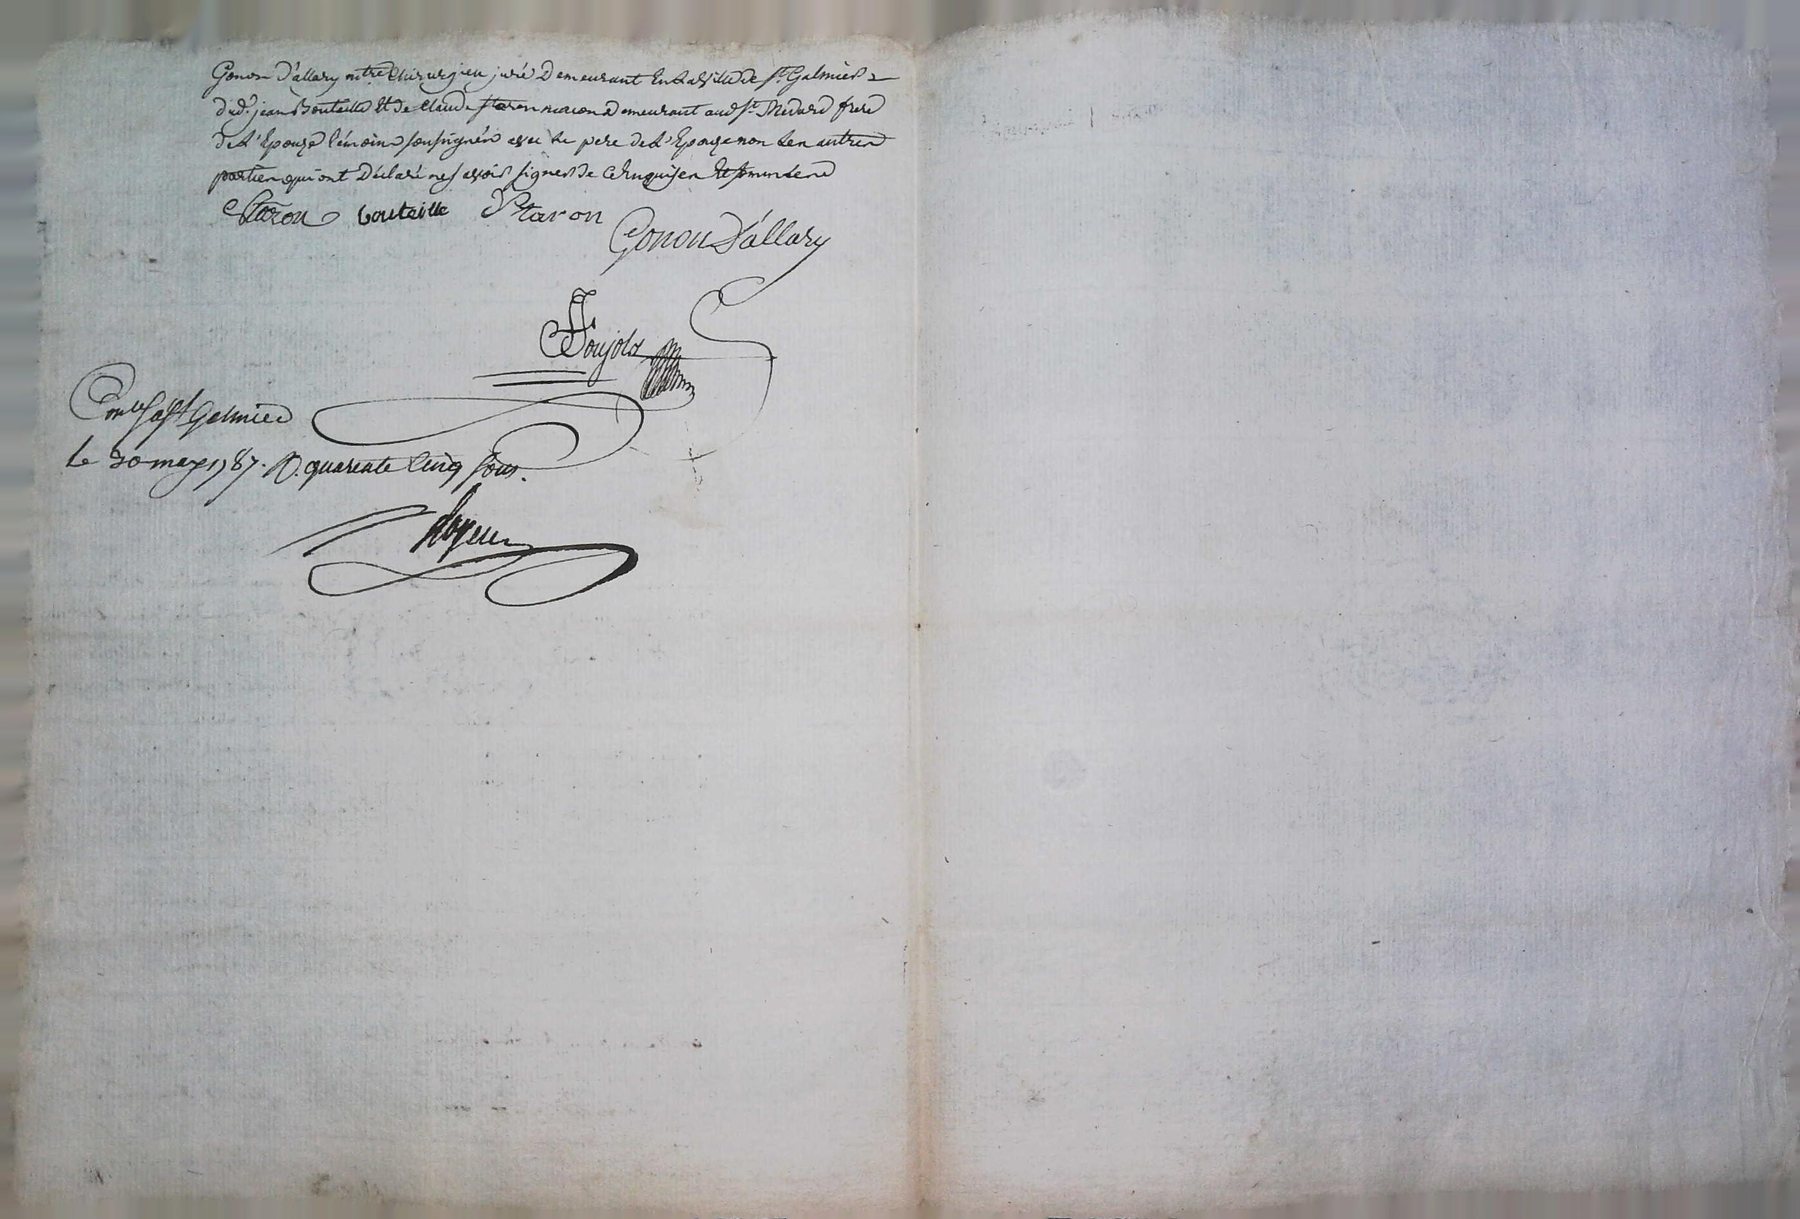 Gonon D'allary mtre Chirurgien juré Demeurant En la ville de St Galmier
dud. jean Bouteille Et de Claude Staron macon demeurant aud St Medard frere
de L'Epouze temoins soussignés avec le pere de L'Epouze non les autres
parties qui ont Déclaré ne savoir signer de ce Enquises Et sommées
Staron bouteille Staron
Gonon D'allary
Poujola
Conlé à St Galmier
Le 30 may 1787. R. quarente Cinq sous.